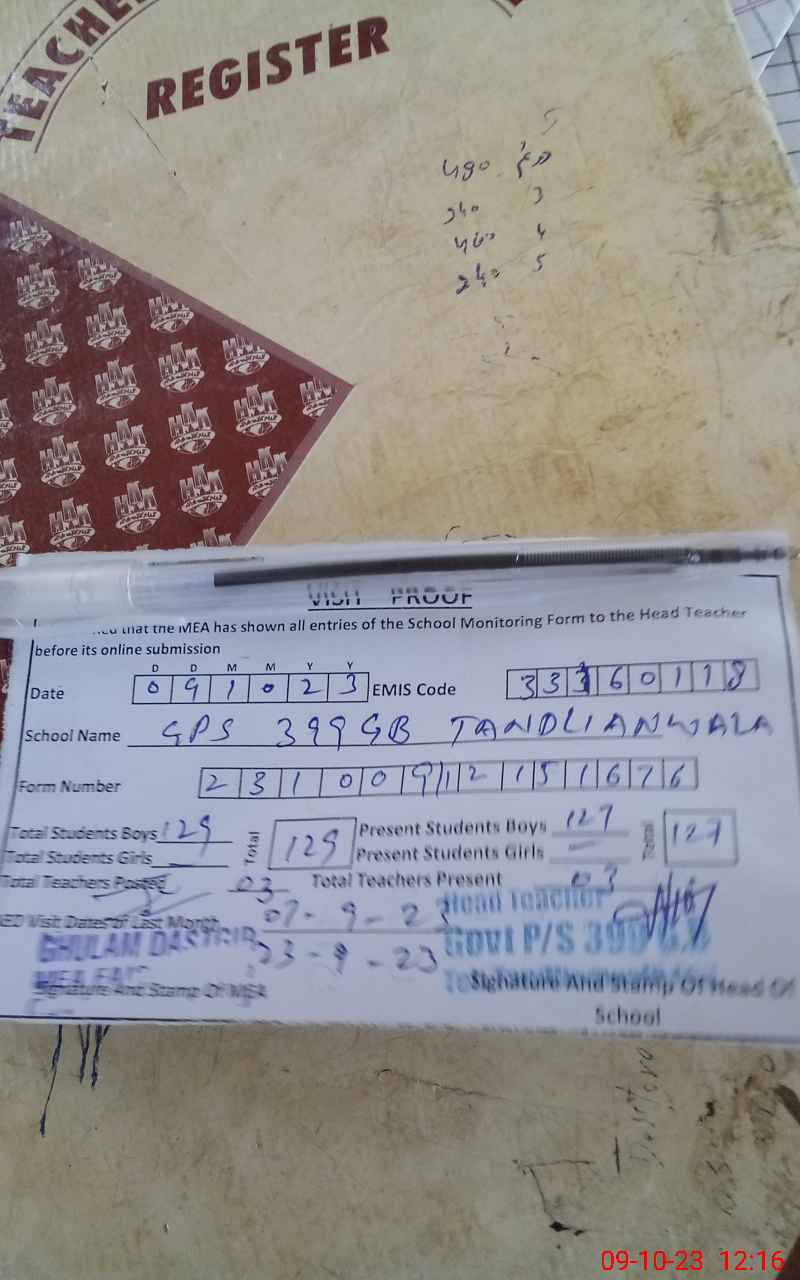 TEACHE
REGISTER
490
3
460 4
240 5
VISIT PROOF
that the MEA has shown all entries of the School Monitoring Form to the Head Teacher
before its online submission
D D M M Y Y
Date 0 9 1 0 2 3 EMIS Code 3 3 3 6 0 1 1 8
School Name GPS 399 GB TANDLIANWALA
Form Number 2 3 1 0 0 9 1 2 1 5 1 6 7 6
Total Students Boys 129 Total 129 Present Students Boys 127 Total 127
Total Students Girls — Present Students Girls —
Total Teachers Posted 03 Total Teachers Present 03
Visit Dates of Last Month 07-9-23
23-9-23
GHULAM DASTGIR
MEA
Head Teacher
Govt P/S 399 G.B
Signature And Stamp Of MEA
Signature And Stamp Of Head Of
School
09-10-23 12:16